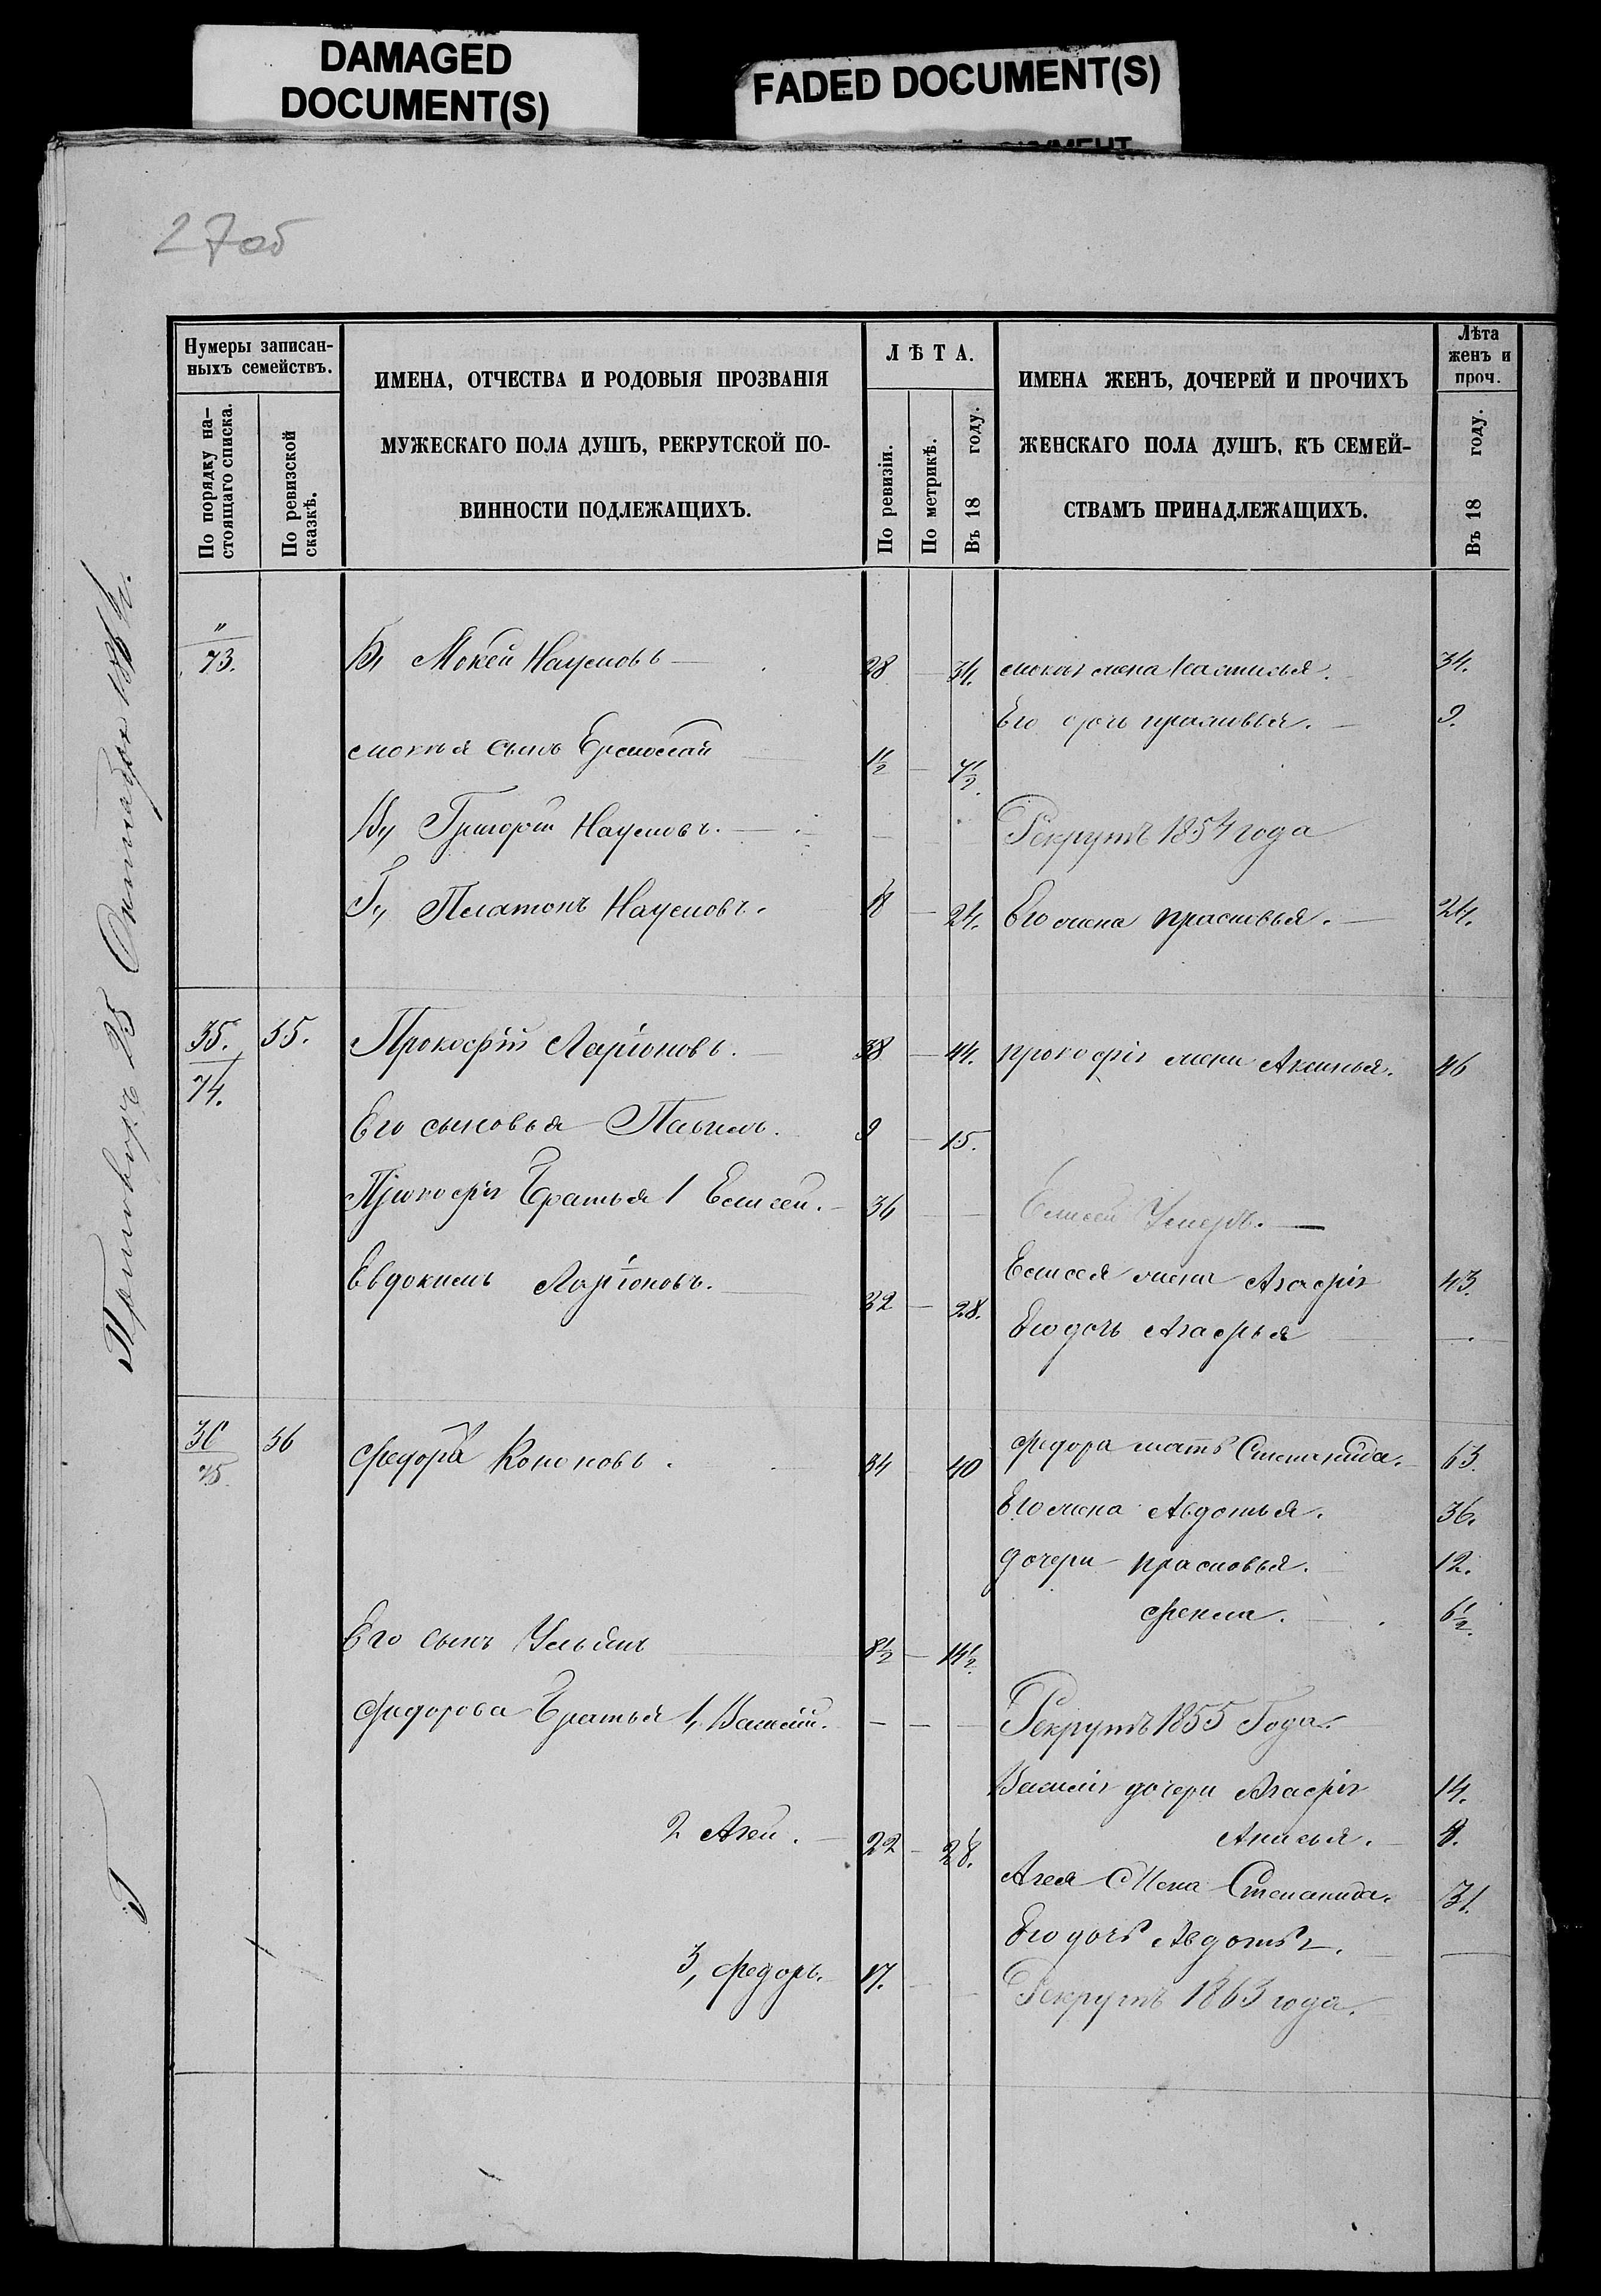 DAMAGED
DOCUMENT(S)
FADED DOCUMENT(S)
27об
Нумеры записан-
ныхъ семействъ.
По порядку на-
стоящаго списка.
По ревизской
сказкѣ.
ИМЕНА, ОТЧЕСТВА И РОДОВЫЯ ПРОЗВАНІЯ
МУЖЕСКАГО ПОЛА ДУШЪ, РЕКРУТСКОЙ ПО-
ВИННОСТИ ПОДЛЕЖАЩИХЪ.
ЛѢТА.
По ревизіи.
По метрикѣ.
Въ 18 году.
ИМЕНА ЖЕНЪ, ДОЧЕРЕЙ И ПРОЧИХЪ
ЖЕНСКАГО ПОЛА ДУШЪ, КЪ СЕМЕЙ-
СТВАМЪ ПРИНАДЛЕЖАЩИХЪ.
Лѣта
женъ и
проч.
Въ 18 году.
"
73. Б, Мокей Наумовъ 28 34. мокея жена 34.
Его дочь прасковья. 9.
мокея сынъ Ермолай 1½ 7½
В, Григорій Наумовъ. Рекрутъ 1854 года
Г, Платонъ Наумовъ. 18 24. Его жена прасковья. 24.
35. 35. Прокофій Ларіоновъ. 38 44. прокофія жена Аксинья. 46
74.
Его сыновья Павилъ. 9 15.
Прокофія Братья 1 Елисей. 36 Елисей Умеръ.
Евдокимъ Ларіоновъ. 32 28. Елисея жена Агафія 43.
Его дочь Агафья
36 36 Федоръ Кононовъ. 34 40 федора мать Степанида. 63.
75.
Его жена Авдотья. 36.
дочери прасковья. 12.
фекла. 6½.
Его сынъ Ульянъ 8½ 14½
Федорова Братья 1, Василій. Рекрутъ 1855 Года.
Василія дочери Агафія 14.
2 Агей. 22 28. Анисья. 8.
Агея Жена Степанида. 31.
Его дочь Авдотья.
3, федоръ. 17. Рекрутъ 1863 года.
25 Октября 1864 г.